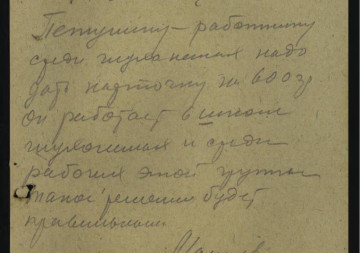 Петушину – работнику
среди глухонемых надо
дать карточку на 600 гр
он работает в школе
глухонемых и среди
рабочих этой группы
такое решение будет
правильным.